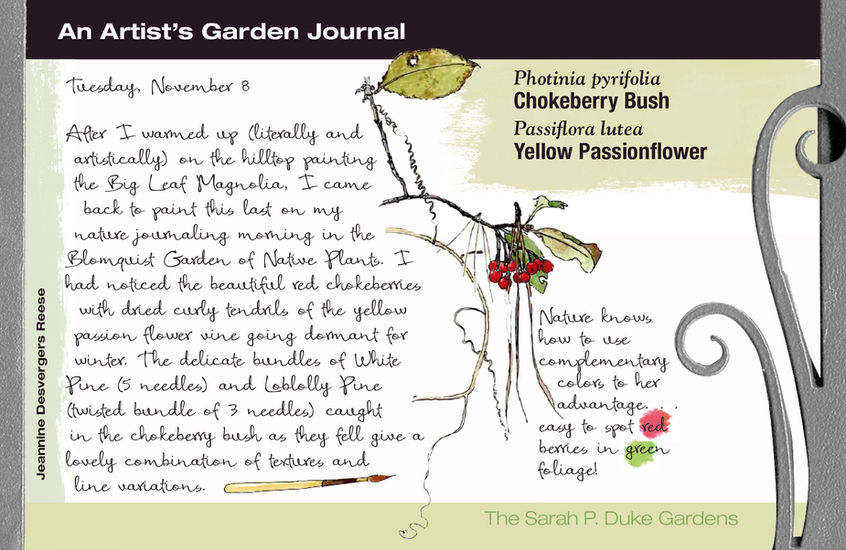 An Artist's Garden Journal
Tuesday, November 8
After I warmed up (literally and
artistically) on the hilltop painting
the Big Leaf Magnolia, I came
back to paint this last on my
nature journaling morning in the
Blomquist Garden of Native Plants. I
had noticed the beautiful red chokeberries
with dried curly tendrils of the yellow
passion flower vine going dormant for
winter. The delicate bundles of White
Pine (5 needles) and Loblolly Pine
(twisted bundle of 3 needles) caught
in the chokeberry bush as they fell give a
lovely combination of textures and
line variations.
Photinia pyrifolia
Chokeberry Bush
Passiflora lutea
Yellow Passionflower
Nature knows
how to use
complementary
colors to her
advantage. . .
easy to spot red
berries in green
foliage!
Jeannine Desvergers Reese
The Sarah P. Duke Gardens